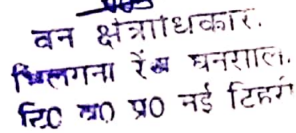 वन क्षेत्राधिकार.
भिलगना रेंज घनशाल.
टि0 बा0 प्र0 नई टिहरी